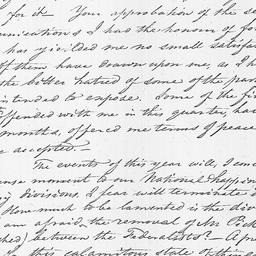 for it— Your approbation of the se
unications I had the honour of for
has yielded me no small satisfac
them have drawn upon me, as I h
the bitter hatred of some of the par
intended to expose. Some of the fi
offended with me in this quarter, ha
months, offered me terms of peace
accepted.
The events of this year will, I conc
moment to our National happin
divisions, I fear will terminate
much to be lamented is the div
am afraid, the removal of Mr Pick
ched) between the Federalists?— A pr
of this calamitous state of things